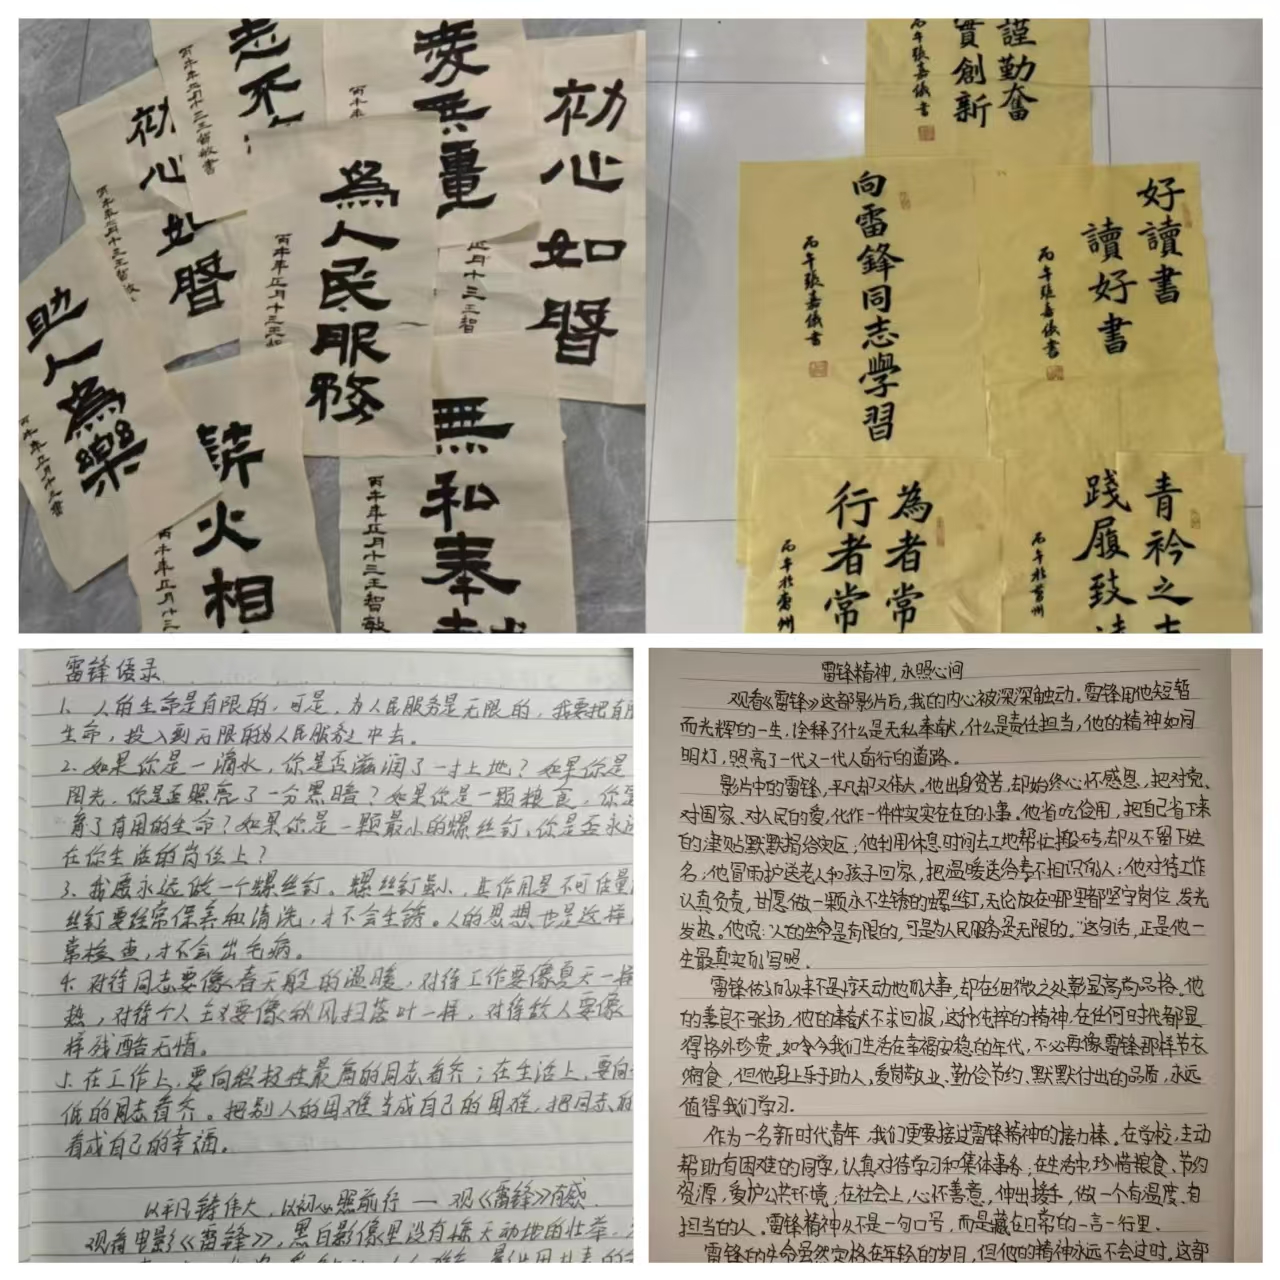 志不
丙午年正月十三王智敏書
老兵重
初心如磐
丙午年正月十三王智敏
初心如磐
為人民服務
丙午年正月十三王智
正月十三王智
助人為樂
丙午年正月十三書
薪火相
丙午年正月十三
無私奉献
丙午年正月十三王智敏
謹勤奮
實創新
丙午張嘉儀書
向雷鋒同志學習
丙午張嘉儀書
好讀書
讀好書
丙午張嘉儀書
為者常
行者常
丙午於雷州
青衿之志
踐履致
丙午於雷州
雷锋语录
1、人的生命是有限的,可是,为人民服务是无限的,我要把有限
生命,投入到无限的为人民服务之中去。
2.如果你是一滴水,你是否滋润了一寸土地?如果你是
阳光,你是否照亮了一分黑暗?如果你是一颗粮食,你是
育了有用的生命?如果你是一颗最小的螺丝钉,你是否永远
在你生活的岗位上?
3.我愿永远做一个螺丝钉。螺丝钉虽小,其作用是不可估量
丝钉要经常保养和清洗,才不会生锈。人的思想也是这样,
常检查,才不会出毛病。
4.对待同志要像春天般的温暖,对待工作要像夏天一样
热,对待个人主义要像秋风扫落叶一样,对待敌人要像
样残酷无情。
5.在工作上,要向积极性最高的同志看齐;在生活上,要向
低的同志看齐。把别人的困难当成自己的困难,把同志的
看成自己的幸福。
以平凡铸伟大,以初心照前行——观《雷锋》有感
观看电影《雷锋》,黑白影像里没有惊天动地的壮举,
雷锋精神,永照心间
观看《雷锋》这部影片后,我的内心被深深触动。雷锋用他短暂
而光辉的一生,诠释了什么是无私奉献,什么是责任担当,他的精神如同
明灯,照亮了一代又一代人前行的道路。
影片中的雷锋,平凡却又伟大。他出身贫苦,却始终心怀感恩,把对党、
对国家、对人民的爱,化作一件件实实在在的小事。他省吃俭用,把自己省下来
的津贴默默捐给灾区;他利用休息时间去工地帮忙搬砖,却从不留下姓
名;他冒雨护送老人和孩子回家,把温暖送给素不相识的人;他对待工作
认真负责,甘愿做一颗永不生锈的螺丝钉,无论放在哪里都坚守岗位,发光
发热。他说:“人的生命是有限的,可是为人民服务是无限的。”这句话,正是他一
生最真实的写照。
雷锋做的从来不是惊天动地的大事,却在细微之处彰显高尚品格。他
的善良不张扬,他的奉献不求回报,这种纯粹的精神,在任何时代都显
得格外珍贵。如今今我们生活在幸福安稳的年代,不必再像雷锋那样节衣
缩食,但他身上乐于助人、爱岗敬业、勤俭节约、默默付出的品质,永远
值得我们学习.
作为一名新时代青年,我们更要接过雷锋精神的接力棒。在学校,主动
帮助有困难的同学,认真对待学习和集体事务;在生活中,珍惜粮食、节约
资源,爱护公共环境;在社会上,心怀善意,伸出援手,做一个有温度、有
担当的人。雷锋精神从不是一句口号,而是藏在日常的一言一行里.
雷锋的生命虽然定格在年轻的岁月,但他的精神永远不会过时。这部